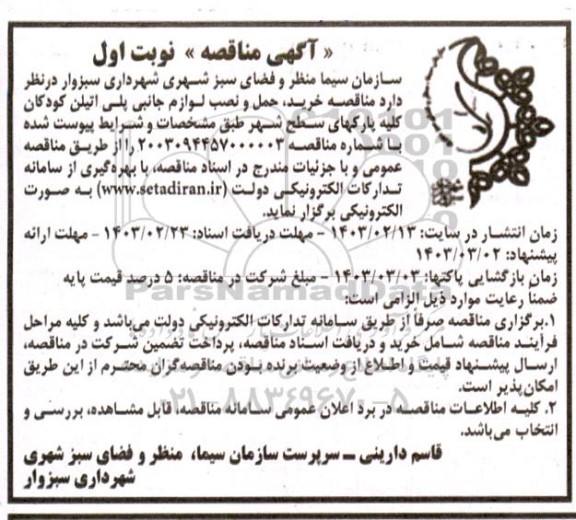 « آگهی مناقصه » نوبت اول
سازمان سیما منظر و فضای سبز شهری شهرداری سبزوار درنظر
دارد مناقصه خرید، حمل و نصب لوازم جانبی پلی اتیلن کودکان
کلیه پارکهای سطح شهر طبق مشخصات و شرایط پیوست شده
با شماره مناقصه ۲۰۰۳۰۹۴۴۵۷۰۰۰۰۰۳ را از طریق مناقصه
عمومی و با جزئیات مندرج در اسناد مناقصه، با بهره‌گیری از سامانه
تدارکات الکترونیکی دولت (www.setadiran.ir) به صورت
الکترونیکی برگزار نماید.
زمان انتشار در سایت: ۱۴۰۳/۰۲/۱۳ - مهلت دریافت اسناد: ۱۴۰۳/۰۲/۲۳ - مهلت ارائه
پیشنهاد: ۱۴۰۳/۰۳/۰۲
زمان بازگشایی پاکتها: ۱۴۰۳/۰۳/۰۳ - مبلغ شرکت در مناقصه: ۵ درصد قیمت پایه
ضمناً رعایت موارد ذیل الزامی است:
۱.برگزاری مناقصه صرفاً از طریق سامانه تدارکات الکترونیکی دولت می‌باشد و کلیه مراحل
فرآیند مناقصه شامل خرید و دریافت اسناد مناقصه، پرداخت تضمین شرکت در مناقصه،
ارسال پیشنهاد قیمت و اطلاع از وضعیت برنده بودن مناقصه‌گران محترم از این طریق
امکان‌پذیر است.
۲. کلیه اطلاعات مناقصه در برد اعلان عمومی سامانه مناقصه، قابل مشاهده، بررسی و
انتخاب می‌باشد.
قاسم دارینی ــ سرپرست سازمان سیما، منظر و فضای سبز شهری
شهرداری سبزوار
ParsNamadData
۰۲۱-۸۸۳۴۹۶۷۰-۵